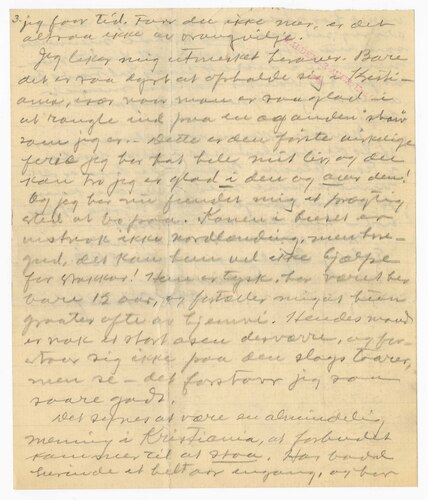 3.
jeg faar tid. Faar du ikke mer, er det
altsaa ikke av vrangvilje.
Jeg liker mig utmerket herover. Bare
det er saa dyrt at opholde sig i Kristi-
ania, især naar man er saa glad i
at rangle ind paa en og anden
som jeg er. – Dette er den første virkelige
ferie jeg har hat hele mit liv, og du
kan tro jeg er glad i den og aar den!
Og jeg har nu fundet mig et prægtig
sted at bo paa. Konen i huset er
ikke nordlænding, men
gud, det kan hun vel ikke hjælpe
for stakkar! Hun er tysk, har været her
bare 12 aar, og fortæller mig at hun
graater ofte av hjemvé. Hendes mand
er nok et stort asen desværre, og for-
staar sig ikke paa den slags taarer,
men se – det forstaar jeg saa
saare godt.
Det synes at være en almindelig
mening i Kristiania, at forbudet
kommer til at staa. Har baade
et helt aar engang, og har